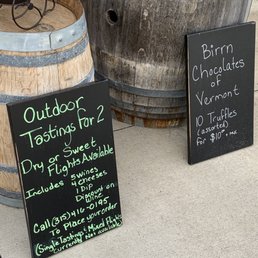 Outdoor
Tastings For 2
Dry or Sweet
Flights Available
Includes 5 wines
4 cheeses
1 Dip
Discount on
Wine
Call (315)416-0195
To Place your order
(Single Tastings, Mixed Flights
Currently Not available)
Birrn
Chocolates
of
Vermont
10 Truffles
(assorted)
For $10 + tax